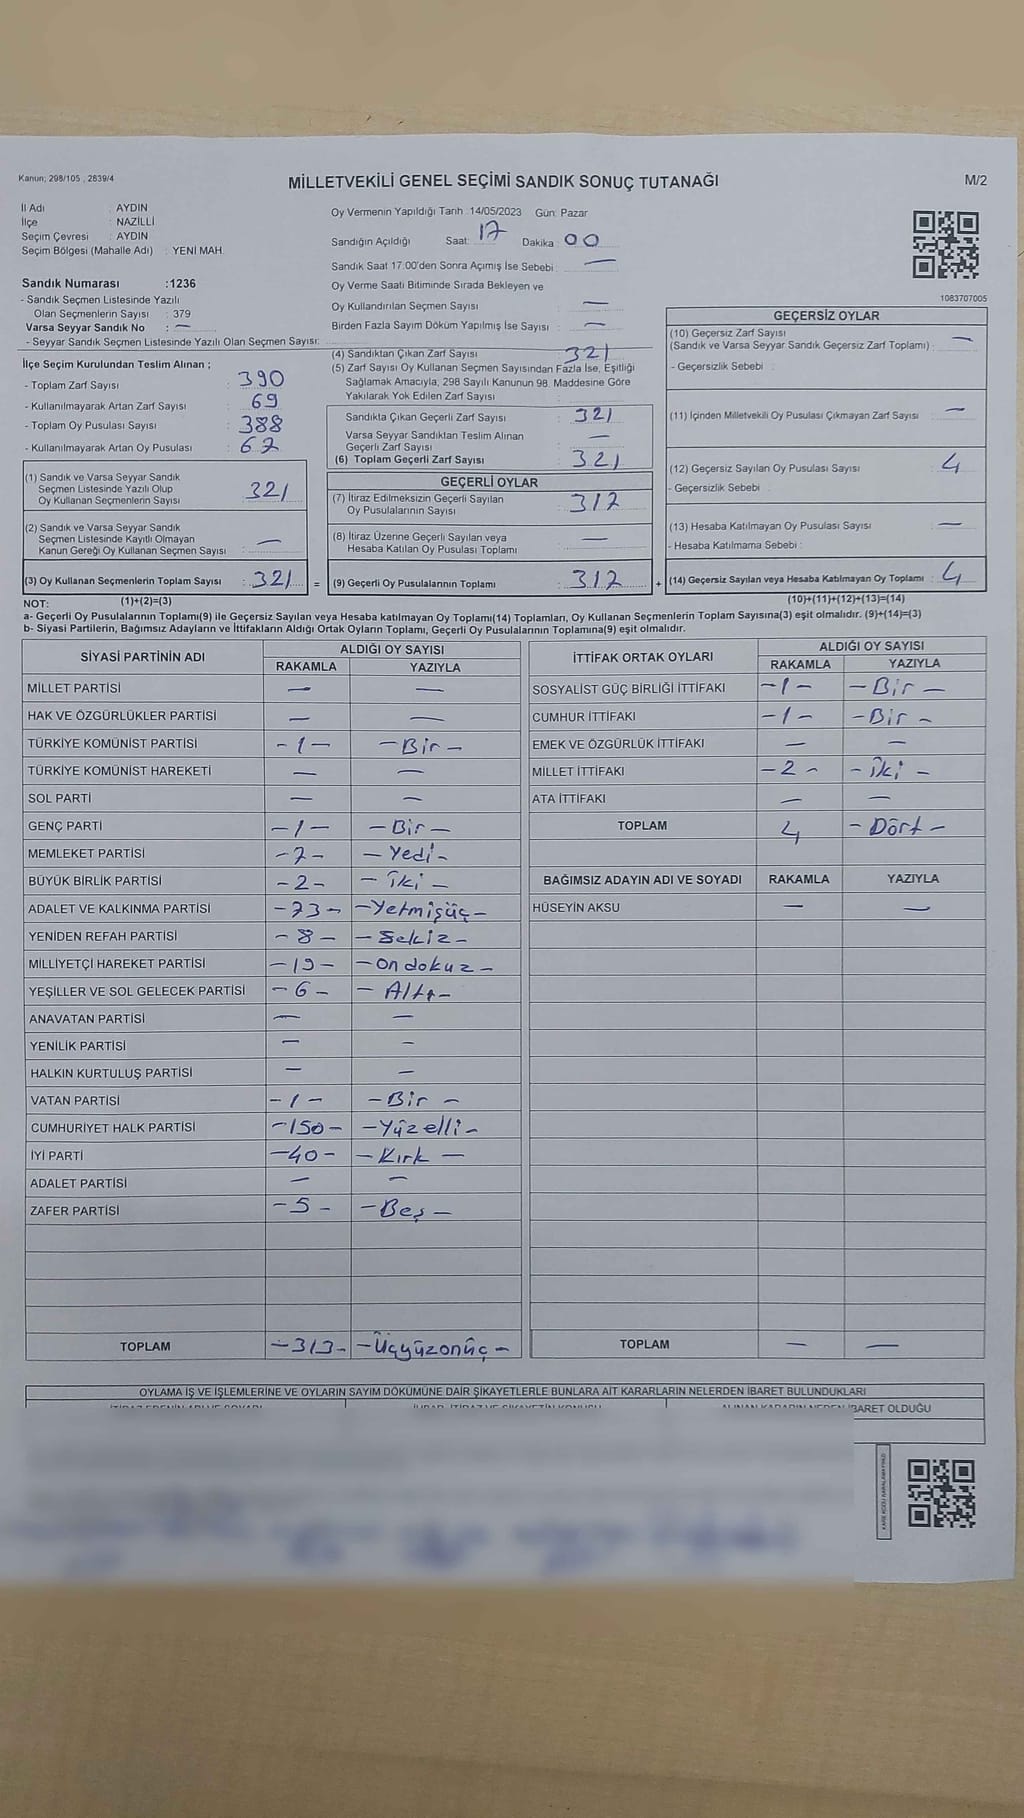 Kanun; 298/105 , 2839/4
MİLLETVEKİLİ GENEL SEÇİMİ SANDIK SONUÇ TUTANAĞI
M/2
İl Adı : AYDIN
İlçe : NAZİLLİ
Seçim Çevresi : AYDIN
Seçim Bölgesi (Mahalle Adı) : YENİ MAH.
Oy Vermenin Yapıldığı Tarih :14/05/2023 Gün: Pazar
Sandığın Açıldığı Saat: 17 Dakika: 00
Sandık Saat 17:00'den Sonra Açımış İse Sebebi : —
Oy Verme Saati Bitiminde Sırada Bekleyen ve
Oy Kullandırılan Seçmen Sayısı : —
Birden Fazla Sayım Döküm Yapılmış İse Sayısı : —
1083707005
Sandık Numarası :1236
- Sandık Seçmen Listesinde Yazılı
Olan Seçmenlerin Sayısı : 379
Varsa Seyyar Sandık No : —
- Seyyar Sandık Seçmen Listesinde Yazılı Olan Seçmen Sayısı:
İlçe Seçim Kurulundan Teslim Alınan ;
- Toplam Zarf Sayısı : 390
- Kullanılmayarak Artan Zarf Sayısı : 69
- Toplam Oy Pusulası Sayısı : 388
- Kullanılmayarak Artan Oy Pusulası : 67
(1) Sandık ve Varsa Seyyar Sandık
Seçmen Listesinde Yazılı Olup
Oy Kullanan Seçmenlerin Sayısı : 321
(2) Sandık ve Varsa Seyyar Sandık
Seçmen Listesinde Kayıtlı Olmayan
Kanun Gereği Oy Kullanan Seçmen Sayısı : —
(3) Oy Kullanan Seçmenlerin Toplam Sayısı : 321 =
(1)+(2)=(3)
(4) Sandıktan Çıkan Zarf Sayısı : 321
(5) Zarf Sayısı Oy Kullanan Seçmen Sayısından Fazla İse, Eşitliği
Sağlamak Amacıyla, 298 Sayılı Kanunun 98. Maddesine Göre
Yakılarak Yok Edilen Zarf Sayısı :
Sandıkta Çıkan Geçerli Zarf Sayısı : 321
Varsa Seyyar Sandıktan Teslim Alınan
Geçerli Zarf Sayısı : —
(6) Toplam Geçerli Zarf Sayısı : 321
GEÇERLİ OYLAR
(7) İtiraz Edilmeksizin Geçerli Sayılan
Oy Pusulalarının Sayısı : 317
(8) İtiraz Üzerine Geçerli Sayılan veya
Hesaba Katılan Oy Pusulası Toplamı : —
(9) Geçerli Oy Pusulalarının Toplamı : 317 +
GEÇERSİZ OYLAR
(10) Geçersiz Zarf Sayısı
(Sandık ve Varsa Seyyar Sandık Geçersiz Zarf Toplamı) : —
- Geçersizlik Sebebi :
(11) İçinden Milletvekili Oy Pusulası Çıkmayan Zarf Sayısı : —
(12) Geçersiz Sayılan Oy Pusulası Sayısı : 4
- Geçersizlik Sebebi :
(13) Hesaba Katılmayan Oy Pusulası Sayısı : —
- Hesaba Katılmama Sebebi :
(14) Geçersiz Sayılan veya Hesaba Katılmayan Oy Toplamı : 4
(10)+(11)+(12)+(13)=(14)
NOT:
a- Geçerli Oy Pusulalarının Toplamı(9) ile Geçersiz Sayılan veya Hesaba katılmayan Oy Toplamı(14) Toplamları, Oy Kullanan Seçmenlerin Toplam Sayısına(3) eşit olmalıdır. (9)+(14)=(3)
b- Siyasi Partilerin, Bağımsız Adayların ve İttifakların Aldığı Ortak Oyların Toplamı, Geçerli Oy Pusulalarının Toplamına(9) eşit olmalıdır.
SİYASİ PARTİNİN ADI ALDIĞI OY SAYISI
RAKAMLA YAZIYLA
MİLLET PARTİSİ — —
HAK VE ÖZGÜRLÜKLER PARTİSİ — —
TÜRKİYE KOMÜNİST PARTİSİ -1- -Bir-
TÜRKİYE KOMÜNİST HAREKETİ — —
SOL PARTİ — —
GENÇ PARTİ -1- -Bir-
MEMLEKET PARTİSİ -7- -Yedi-
BÜYÜK BİRLİK PARTİSİ -2- -İki-
ADALET VE KALKINMA PARTİSİ -73- -Yetmişüç-
YENİDEN REFAH PARTİSİ -8- -Sekiz-
MİLLİYETÇİ HAREKET PARTİSİ -19- -Ondokuz-
YEŞİLLER VE SOL GELECEK PARTİSİ -6- -Altı-
ANAVATAN PARTİSİ — —
YENİLİK PARTİSİ — —
HALKIN KURTULUŞ PARTİSİ — —
VATAN PARTİSİ -1- -Bir-
CUMHURİYET HALK PARTİSİ -150- -Yüzelli-
İYİ PARTİ -40- -Kırk-
ADALET PARTİSİ — —
ZAFER PARTİSİ -5- -Beş-
TOPLAM -313- -Üçyüzonüç-
İTTİFAK ORTAK OYLARI ALDIĞI OY SAYISI
RAKAMLA YAZIYLA
SOSYALİST GÜÇ BİRLİĞİ İTTİFAKI -1- -Bir-
CUMHUR İTTİFAKI -1- -Bir-
EMEK VE ÖZGÜRLÜK İTTİFAKI — —
MİLLET İTTİFAKI -2- -İki-
ATA İTTİFAKI — —
TOPLAM 4 -Dört-
BAĞIMSIZ ADAYIN ADI VE SOYADI RAKAMLA YAZIYLA
HÜSEYİN AKSU — —
TOPLAM — —
OYLAMA İŞ VE İŞLEMLERİNE VE OYLARIN SAYIM DÖKÜMÜNE DAİR ŞİKAYETLERLE BUNLARA AİT KARARLARIN NELERDEN İBARET BULUNDUKLARI
İBARET OLDUĞU